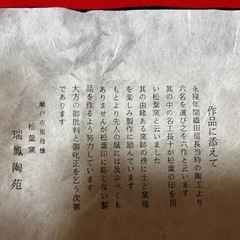 作品に添えて
永禄年間織田信長当時の陶工より
六名を選び之を六作と云います
其の中の名工長十が松葉の印を用
い松葉窯と云いました
其の由緒ある窯跡の傍に土と窯焔
を楽しみ製作に励んでいます
もとより先人の域には及ぶべくも
ありませんが松葉印に恥じない製
品を作るよう努力しています
大方の御批判と御叱正を乞う次第
であります
瀬戸市祖母懐
松葉窯
瑞鳳陶苑